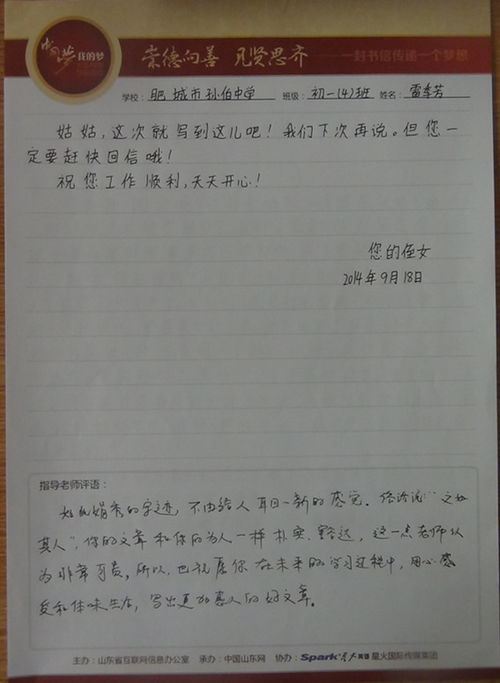 中国梦 我的梦
崇德向善 见贤思齐
一封书信传递一个梦想
学校：肥城市孙伯中学 班级：初一(4)班 姓名：雷季芳
姑姑，这次就写到这儿吧！我们下次再说。但您一
定要赶快回信哦！
祝您工作顺利，天天开心！
您的侄女
2014年9月18日
指导老师评语：
娟秀的字迹，不由给人耳目一新的感觉。俗话说“文如
其人”，你的文章和你的为人一样朴实、豁达，这一点老师认
为非常可贵。所以，也祝愿你在未来的学习过程中，用心感
受和体味生活，写出更加真人的好文章。
主办：山东省互联网信息办公室 承办：中国山东网 协办：Spark星火英语 星火国际传媒集团